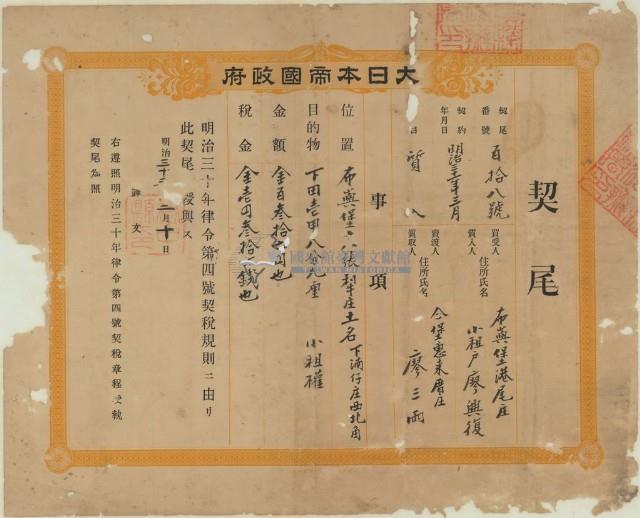 大日本帝國政府
契尾
契尾番號
百拾八號
買受人
買入人
住所氏名
布興堡港尾庄
小租戶廖興復
契約年月日
明治三十二年三月
賣渡人
質取人
住所氏名
仝堡惠來厝庄
廖三両
質入
事項
位置
布興堡八張犁庄土名下湳仔庄西北角
目的物
下田壹甲八分九厘
小租權
金額
金百叁拾
圓也
稅金
金壱円叁拾
錢也
明治三十年律令第四號契稅規則ニ由リ
此契尾
授與ス
明治三十
二月十日
右遵照明治三十年律令第四號契稅章程
契尾為照
國史館臺灣文獻館
TAIWAN HISTORICA